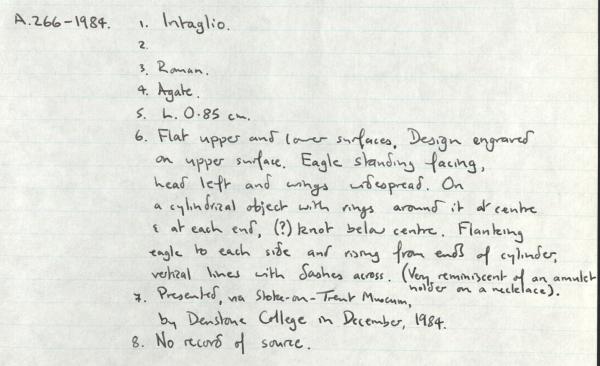 A.266-1984. 1. Intaglio.
2.
3. Roman.
4. Agate.
5. L. 0.85 cm.
6. Flat upper and lower surfaces. Design engraved
on upper surface. Eagle standing facing,
head left and wings widespread. On
a cylindrical object with rings around it at centre
& at each end, (?) knot below centre. Flanking
eagle to each side and rising from ends of cylinder,
vertical lines with dashes across. (Very reminiscent of an amulet
holder on a necklace).
7. Presented, via Stoke-on-Trent Museum,
by Denstone College in December, 1984.
8. No record of source.